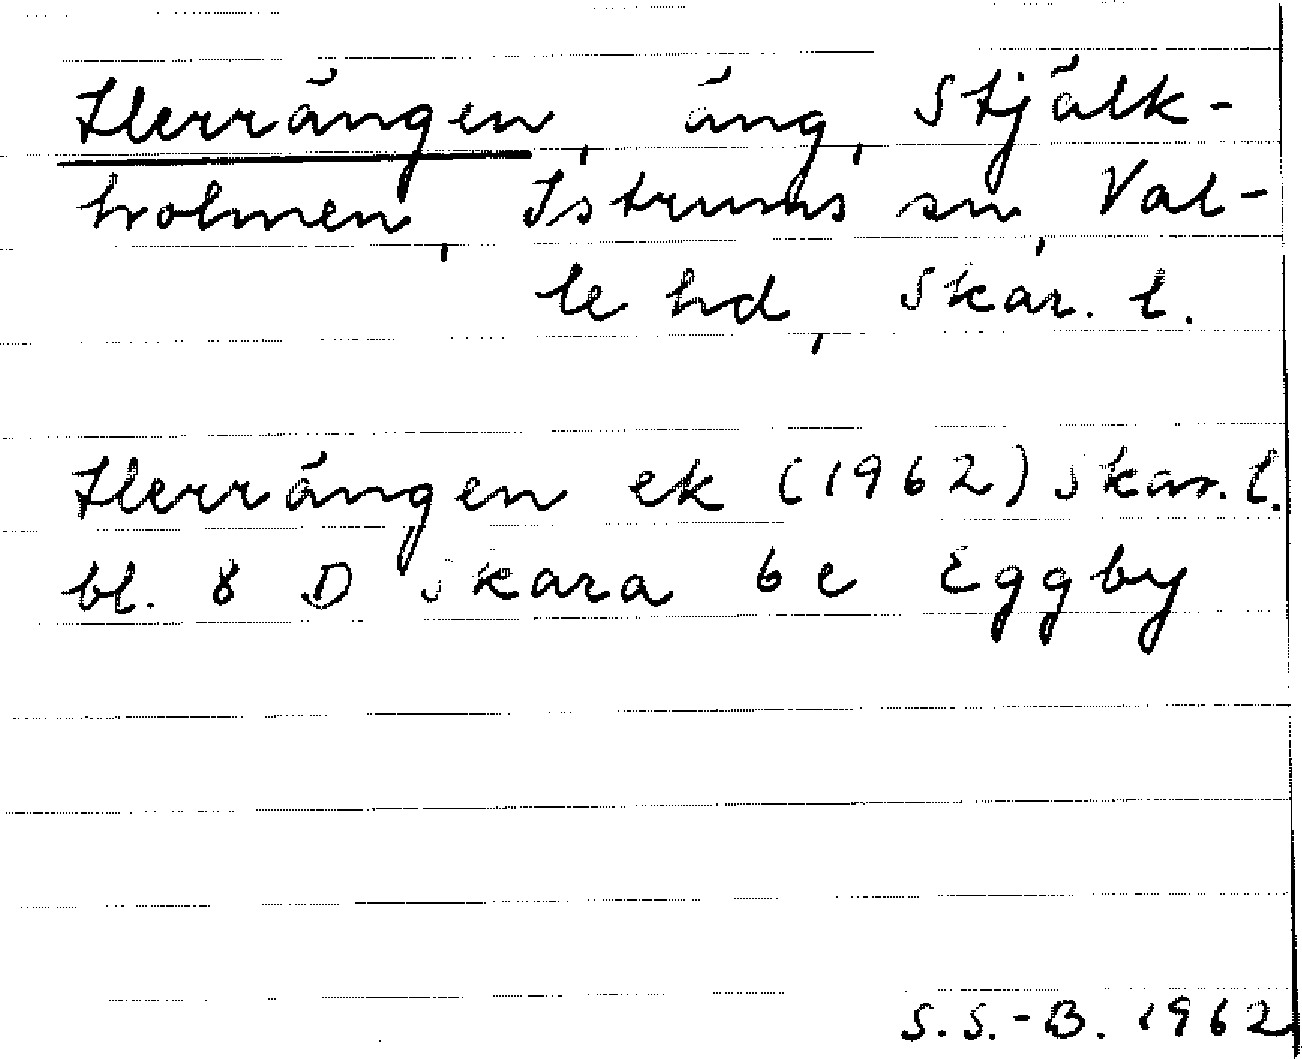 Herrängen, äng, Stjälk-
holmen, Istrums sn, Val-
le hd, Skar. l.
Herrängen ek (1962) Skar. l.
bl. 8 D Skara 6e Eggby
S.S.-B. 1962